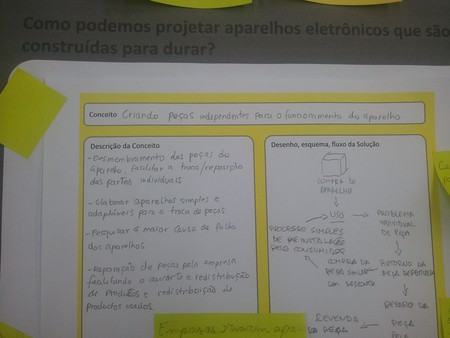 Como podemos projetar aparelhos eletrônicos que são
construídas para durar?
Conceito Criando peças independentes para o funcionamento do aparelho
Descrição da Conceito
- Desmembramento das peças do
aparelho, facilitar a troca/reposição
das partes individuais
- Elaborar aparelhos simples e
adaptáveis para a troca de peças
- Pesquisar a maior causa de falha
dos aparelhos
- Reparação de peças pela empresa
facilitando o descarte e redistribuição
de produtos e redistribuição de
productos usados.
Desenho, esquema, fluxo da Solução
COMPRA DE
APARELHO
USO
PROBLEMA
INDIVIDUAL
DE PEÇA
PROCESSO SIMPLES
DE REINSTALAÇÃO
PELO CONSUMIDOR
COMPRA DA
PEÇA
RETORNO DA
PEÇA
DA
REVENDA
DA PEÇA
PEÇA
PELA
Empresas